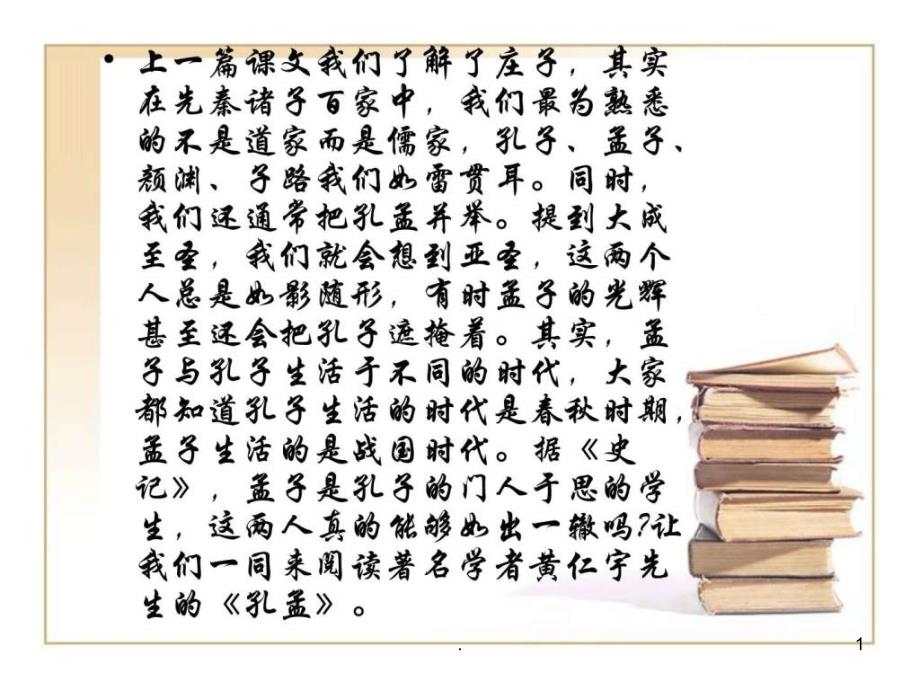 • 上一篇课文我们了解了庄子，其实
在先秦诸子百家中，我们最为熟悉
的不是道家而是儒家，孔子、孟子、
颜渊、子路我们如雷贯耳。同时，
我们还通常把孔孟并举。提到大成
至圣，我们就会想到亚圣，这两个
人总是如影随形，有时孟子的光辉
甚至还会把孔子遮掩着。其实，孟
子与孔子生活于不同的时代，大家
都知道孔子生活的时代是春秋时期，
孟子生活的是战国时代。据《史
记》，孟子是孔子的门人于思的学
生，这两人真的能够如出一辙吗?让
我们一同来阅读著名学者黄仁宇先
生的《孔孟》。
.
1